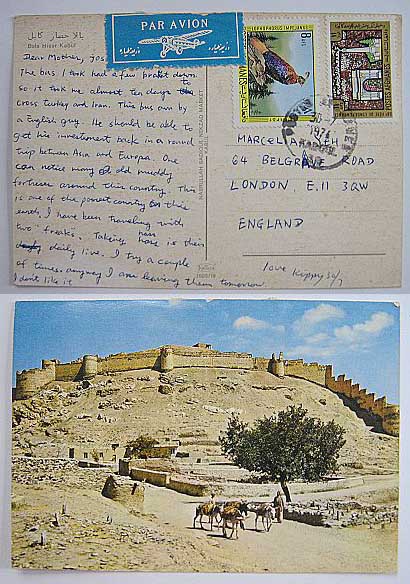 بالا حصار کابل
Bala Hisar Kabul
PAR AVION
Dear Mother,
The bus I took had a few break down
so it took us almost ten days to
cross Turkey and Iran. This bus own by
a English guy. He should be able to
get his investment back in a round
trip between Asia and Europe. One
can notice many old muddy
fortress around this country. This
is one of the poorest country on this
earth, I have been traveling with
two "freaks". Taking hash is their
daily live. I try a couple
of times. anyway I am leaving them tomorrow.
I don't like it
NASRULLAH BADGUL NOKZAD MARKET
KABUL
LOPHOPHORUS IMPEJANUS
1974
MARCELLA
64 BELGRAVE ROAD
LONDON, E.11 3QW
ENGLAND
love Kippy